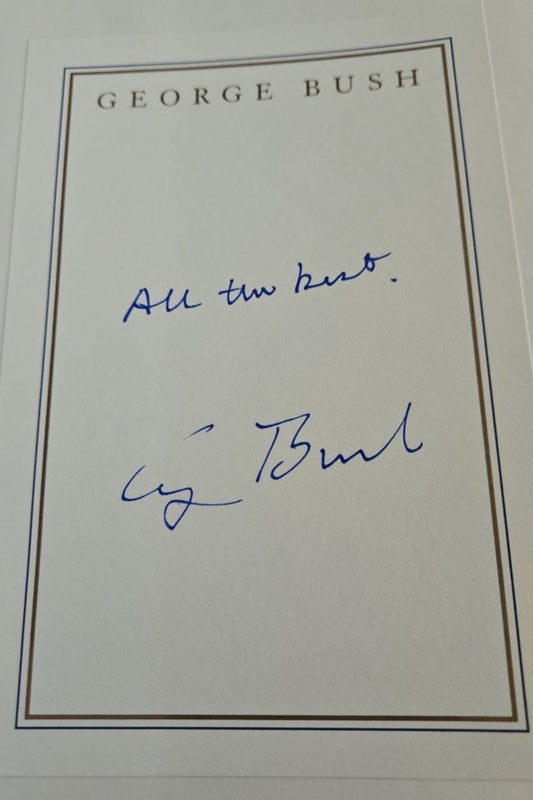 GEORGE BUSH
All the best.
G Bush